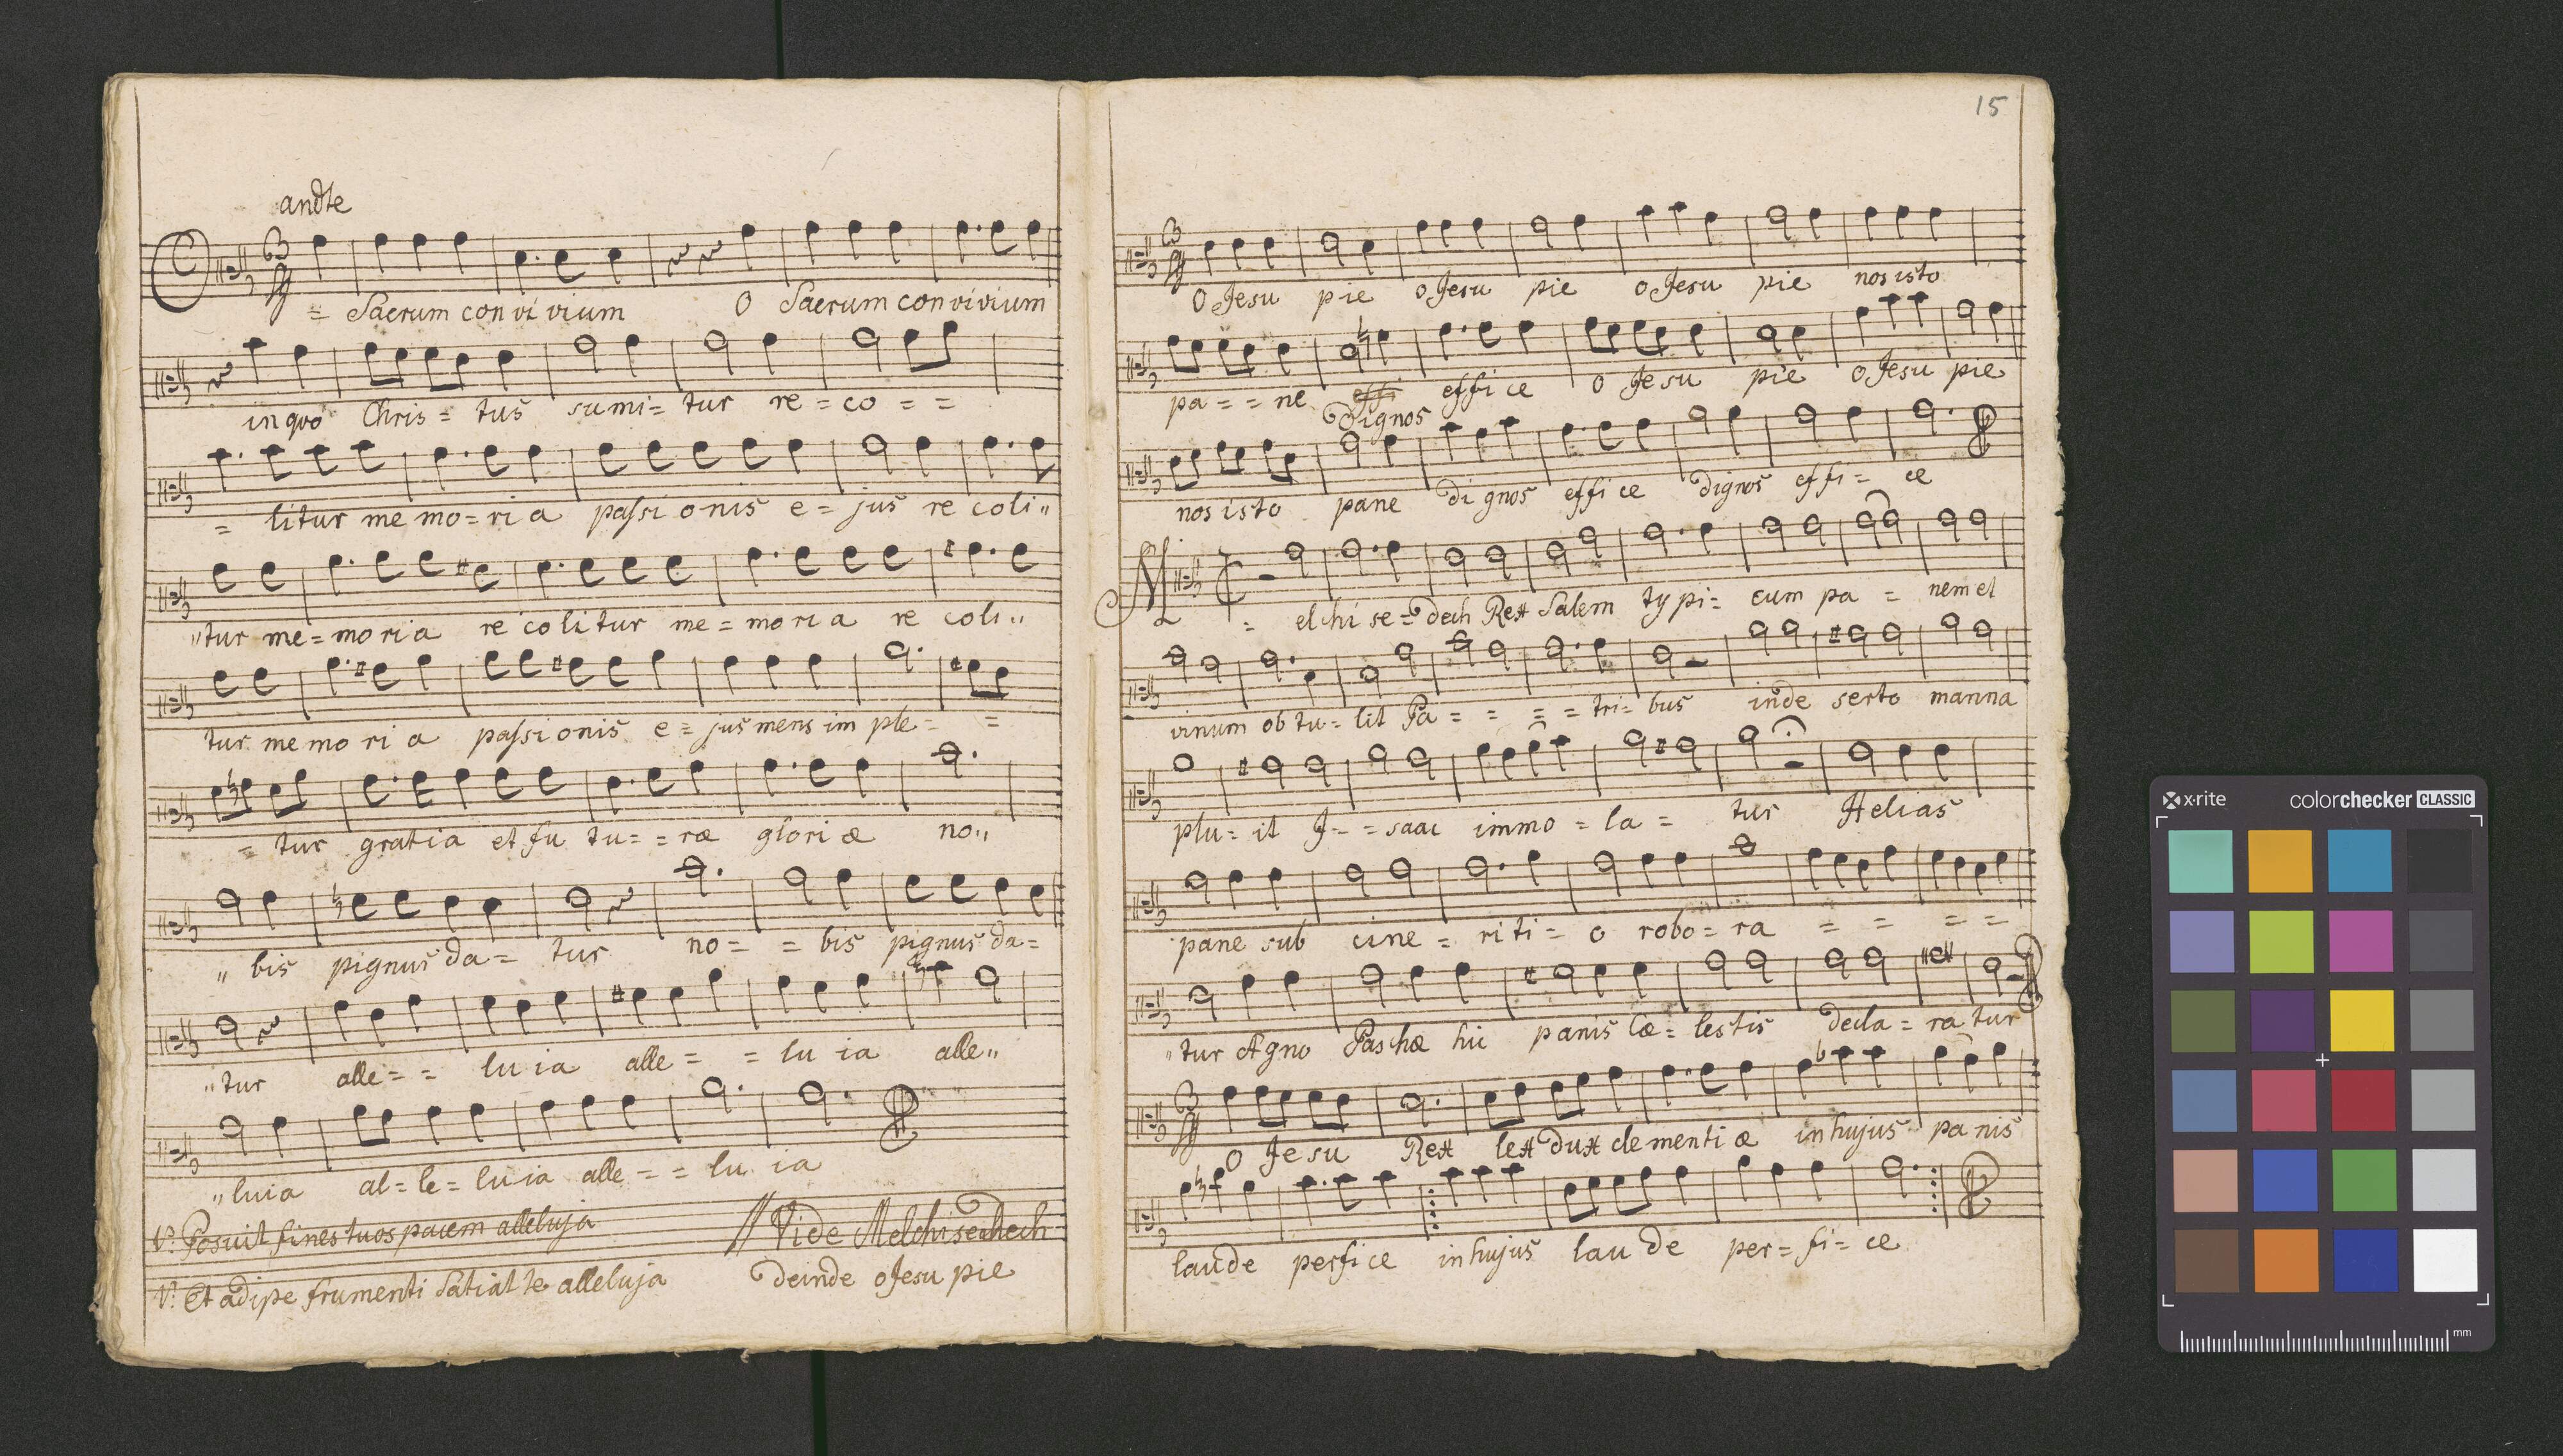 andte
O = Sacrum con vi vium O Sacrum con vivium
in quo Chris = tus sumi = tur re = co = =
= litur me mo = ri a passi o nis e = jus re coli "
" tur me = mo ri a re co li tur me = mo ri a re coli "
tur me mo ri a passi onis e = jus mens im ple = =
= tur gratia et fu tu = = ræ glori æ no "
" bis pignus da = tur no = = bis pignus da =
" tur alle = = lu ia alle = = lu ia alle "
" luia al = le = lu ia alle = = lu ia
V. Posuit fines tuos pacem alleluja // Vide Melchisedech
V. Et adipe frumenti Satiat te alleluja deinde o Jesu pie
15
O Jesu pie o Jesu pie o Jesu pie nos isto
pa = = ne effi effi ce o Je su pie o Jesu pie
dignos
nos isto pane di gnos effi ce dignos effi = ce
M = el chi se = dech Rex Salem ty pi = cum pa = nem et
vinum ob tu = lit Pa = = = = tri = bus inde serto manna
plu = it I = = saac immo = la = tur Helias
pane sub cine = ri ti = o robo = ra = = = =
" tur Agno Paschæ hic panis cæ = lestis decla = ra tur
3 O Je su Rex lex dux clementi æ in hujus pa nis
laude perfi ce in hujus lau de per = fi = ce
x-rite colorchecker CLASSIC
mm